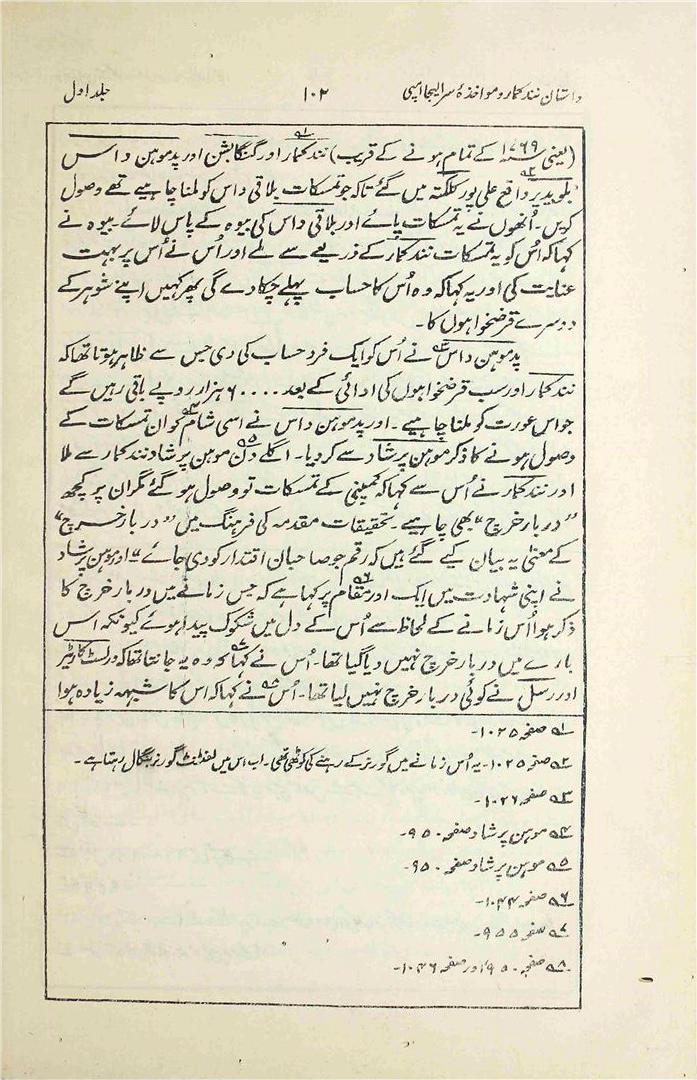 داستان نندکمار و مواخذۂ سر ایلیجا امپی ۱۰۲ جلد اول
(یعنی ۱۷۶۹ء کے تمام ہونے کے قریب) نندکمار اور گنگابشن اور پدموہن داس
بلویدیر واقع علی پور کلکتہ میں گئے تاکہ جو تمسکات بلاقی داس کو ملنا چاہیے تھے وصول
کریں۔ اُنھوں نے یہ تمسکات پائے اور بلاقی داس کی بیوہ کے پاس لائے۔ بیوہ نے
کہا کہ اُس کو یہ تمسکات نندکمار کے ذریعے سے ملے اور اُس نے اُس پر بہت
عنایت کی اور یہ کہا کہ وہ اُس کا حساب پہلے چکا دے گی پھر کہیں اپنے شوہر کے
دوسرے قرضخواہوں کا۔
پدموہن داس نے اُس کو ایک فرد حساب کی دی جس سے ظاہر ہوتا تھا کہ
نندکمار اور سب قرضخواہوں کی ادائی کے بعد ۶۰۰۰۰ ہزار روپے باقی رہیں گے
جو اس عورت کو ملنا چاہیے ۔ اور پدموہن داس نے اسی شام کو ان تمسکات کے
وصول ہونے کا ذکر موہن پرشاد سے کردیا۔ اگلے دن موہن پرشاد نندکمار سے ملا
اور نندکمار نے اُس سے کہا کہ کمپنی کے تمسکات تو وصول ہو گئے مگر ان پر کچھ
”دربار خرچ“ بھی چاہیے۔ تحقیقات مقدمہ کی فرہنگ میں ”دربار خرچ“
کے معنی یہ بیان کیے گئے ہیں کہ رقم جو صاحبان اقتدار کو دی جائے“ اور موہن پرشاد
نے اپنی شہادت میں ایک اور مقام پر کہا ہے کہ جس زمانے میں دربار خرچ کا
ذکر ہوا اُس زمانے کے لحاظ سے اُس کے دل میں شکوک پیدا ہوئے کیونکہ اس
بارے میں دربار خرچ نہیں دیا گیا تھا۔ اُس نے کہا کہ وہ یہ جانتا تھا کہ ورلسٹ کارٹیر
اور رسل نے کوئی دربار خرچ نہیں لیا تھا۔ اُس نے کہا کہ اس کا شبہہ زیادہ ہوا
۱؎ صفحہ ۱۰۲۵۔
۲؎ صفحہ ۱۰۲۵۔ یہ اُس زمانے میں گورنر کے رہنے کی کوٹھی تھی۔ اب اس میں لفٹنٹ گورنر بنگال رہتا ہے۔
۳؎ صفحہ ۱۰۲۶۔
۴؎ موہن پرشاد صفحہ ۹۵۰۔
۵؎ موہن پرشاد صفحہ ۹۵۰۔
۶؎ صفحہ ۱۰۴۴۔
۷؎ صفحہ ۹۵۵۔
۸؎ صفحہ ۹۵۰ اور صفحہ ۱۰۴۶۔